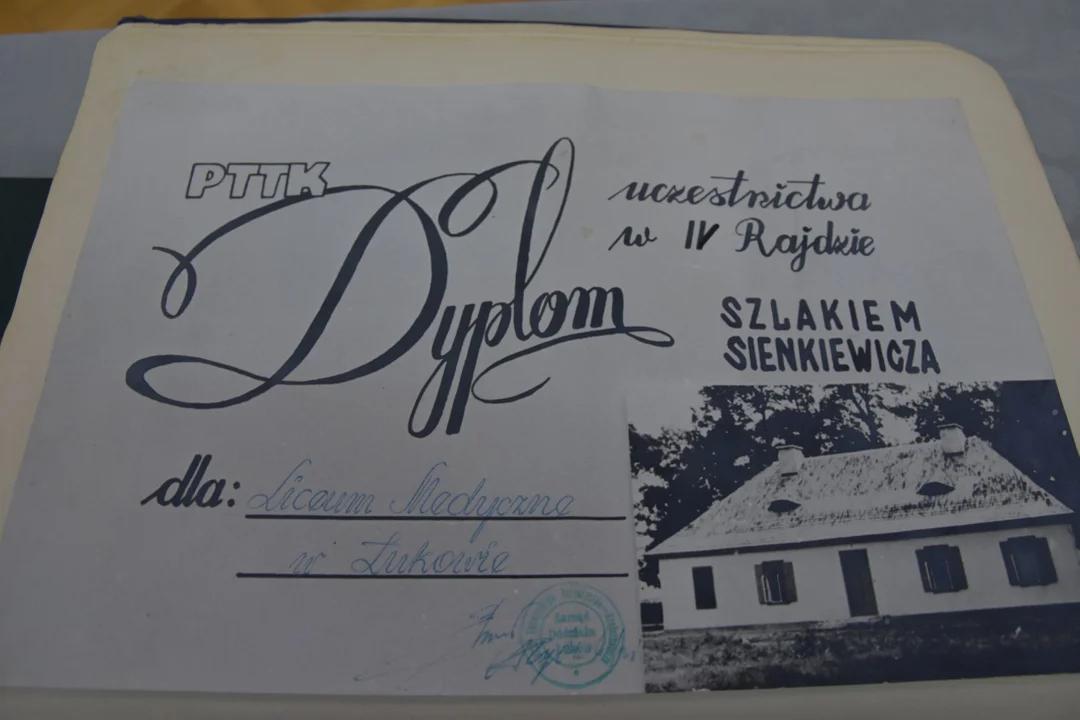 PTTK
Dyplom
uczestnictwa
w IV Rajdzie
SZLAKIEM
SIENKIEWICZA
dla: Liceum Medyczne
w Łukowie
Zarząd
Oddziału